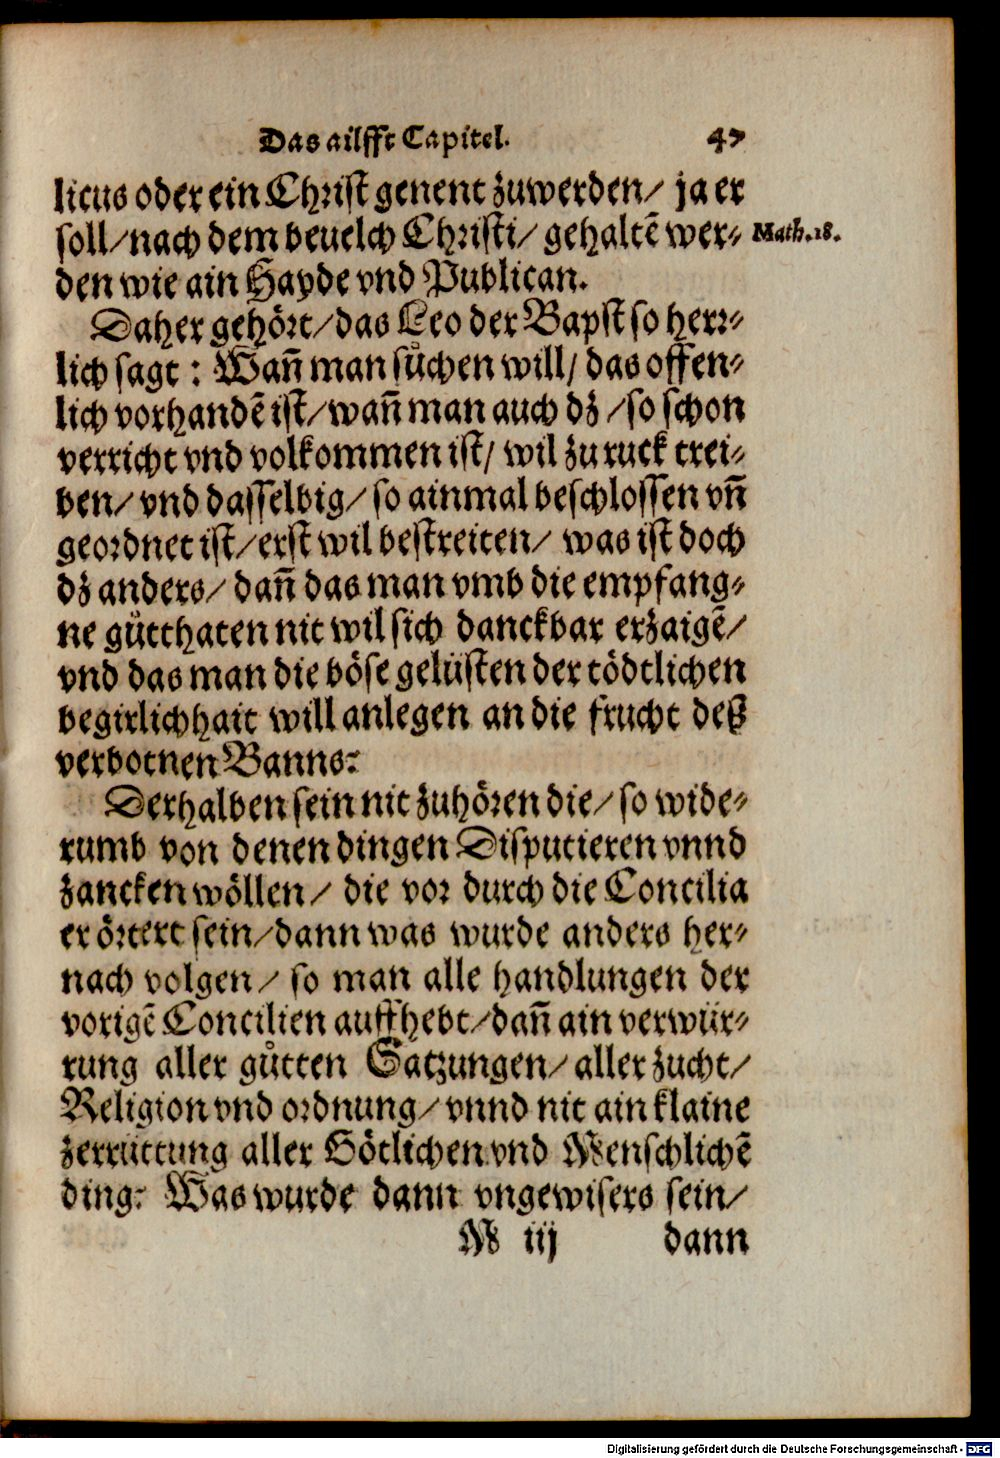 Das ailfft Capitel. 47
licus oder ein Christ genent zuwerden/ ja er
soll/nach dem beuelch Christi/ gehaltẽ wer⸗ Math.18.
den wie ain Hayde vnd Publican.
Daher gehört/das Leo der Bapst so herr⸗
lich sagt: Wañ man sůchen will/ das offen⸗
lich vorhandẽ ist/wañ man auch dz /so schon
verricht vnd volkommen ist/ wil zu ruck trei⸗
ben/ vnd dasselbig/ so ainmal beschlossen vñ
geordnet ist/erst wil bestreiten/ was ist doch
dz anders/ dañ das man vmb die empfang⸗
ne gůtthaten nit wil sich danckbar erzaigẽ/
vnd das man die böse gelüsten der tödtlichen
begirlichhait will anlegen an die frucht deß
verbotnen Banns:
Derhalben sein nit zuhören die/ so wide⸗
rumb von denen dingen Disputieren vnnd
zancken wöllen/ die vor durch die Concilia
er örtert sein/dann was wurde anders her⸗
nach volgen/ so man alle handlungen der
vorigẽ Concilien auffhebt/dañ ain verwür⸗
rung aller gůtten Satzungen/ aller zucht/
Religion vnd ordnung/ vnnd nit ain klaine
zerrüttung aller Götlichen vnd Menschlichẽ
ding: Was wurde dann vngewisers sein/
M iij dann
Digitalisierung gefördert durch die Deutsche Forschungsgemeinschaft - DFG